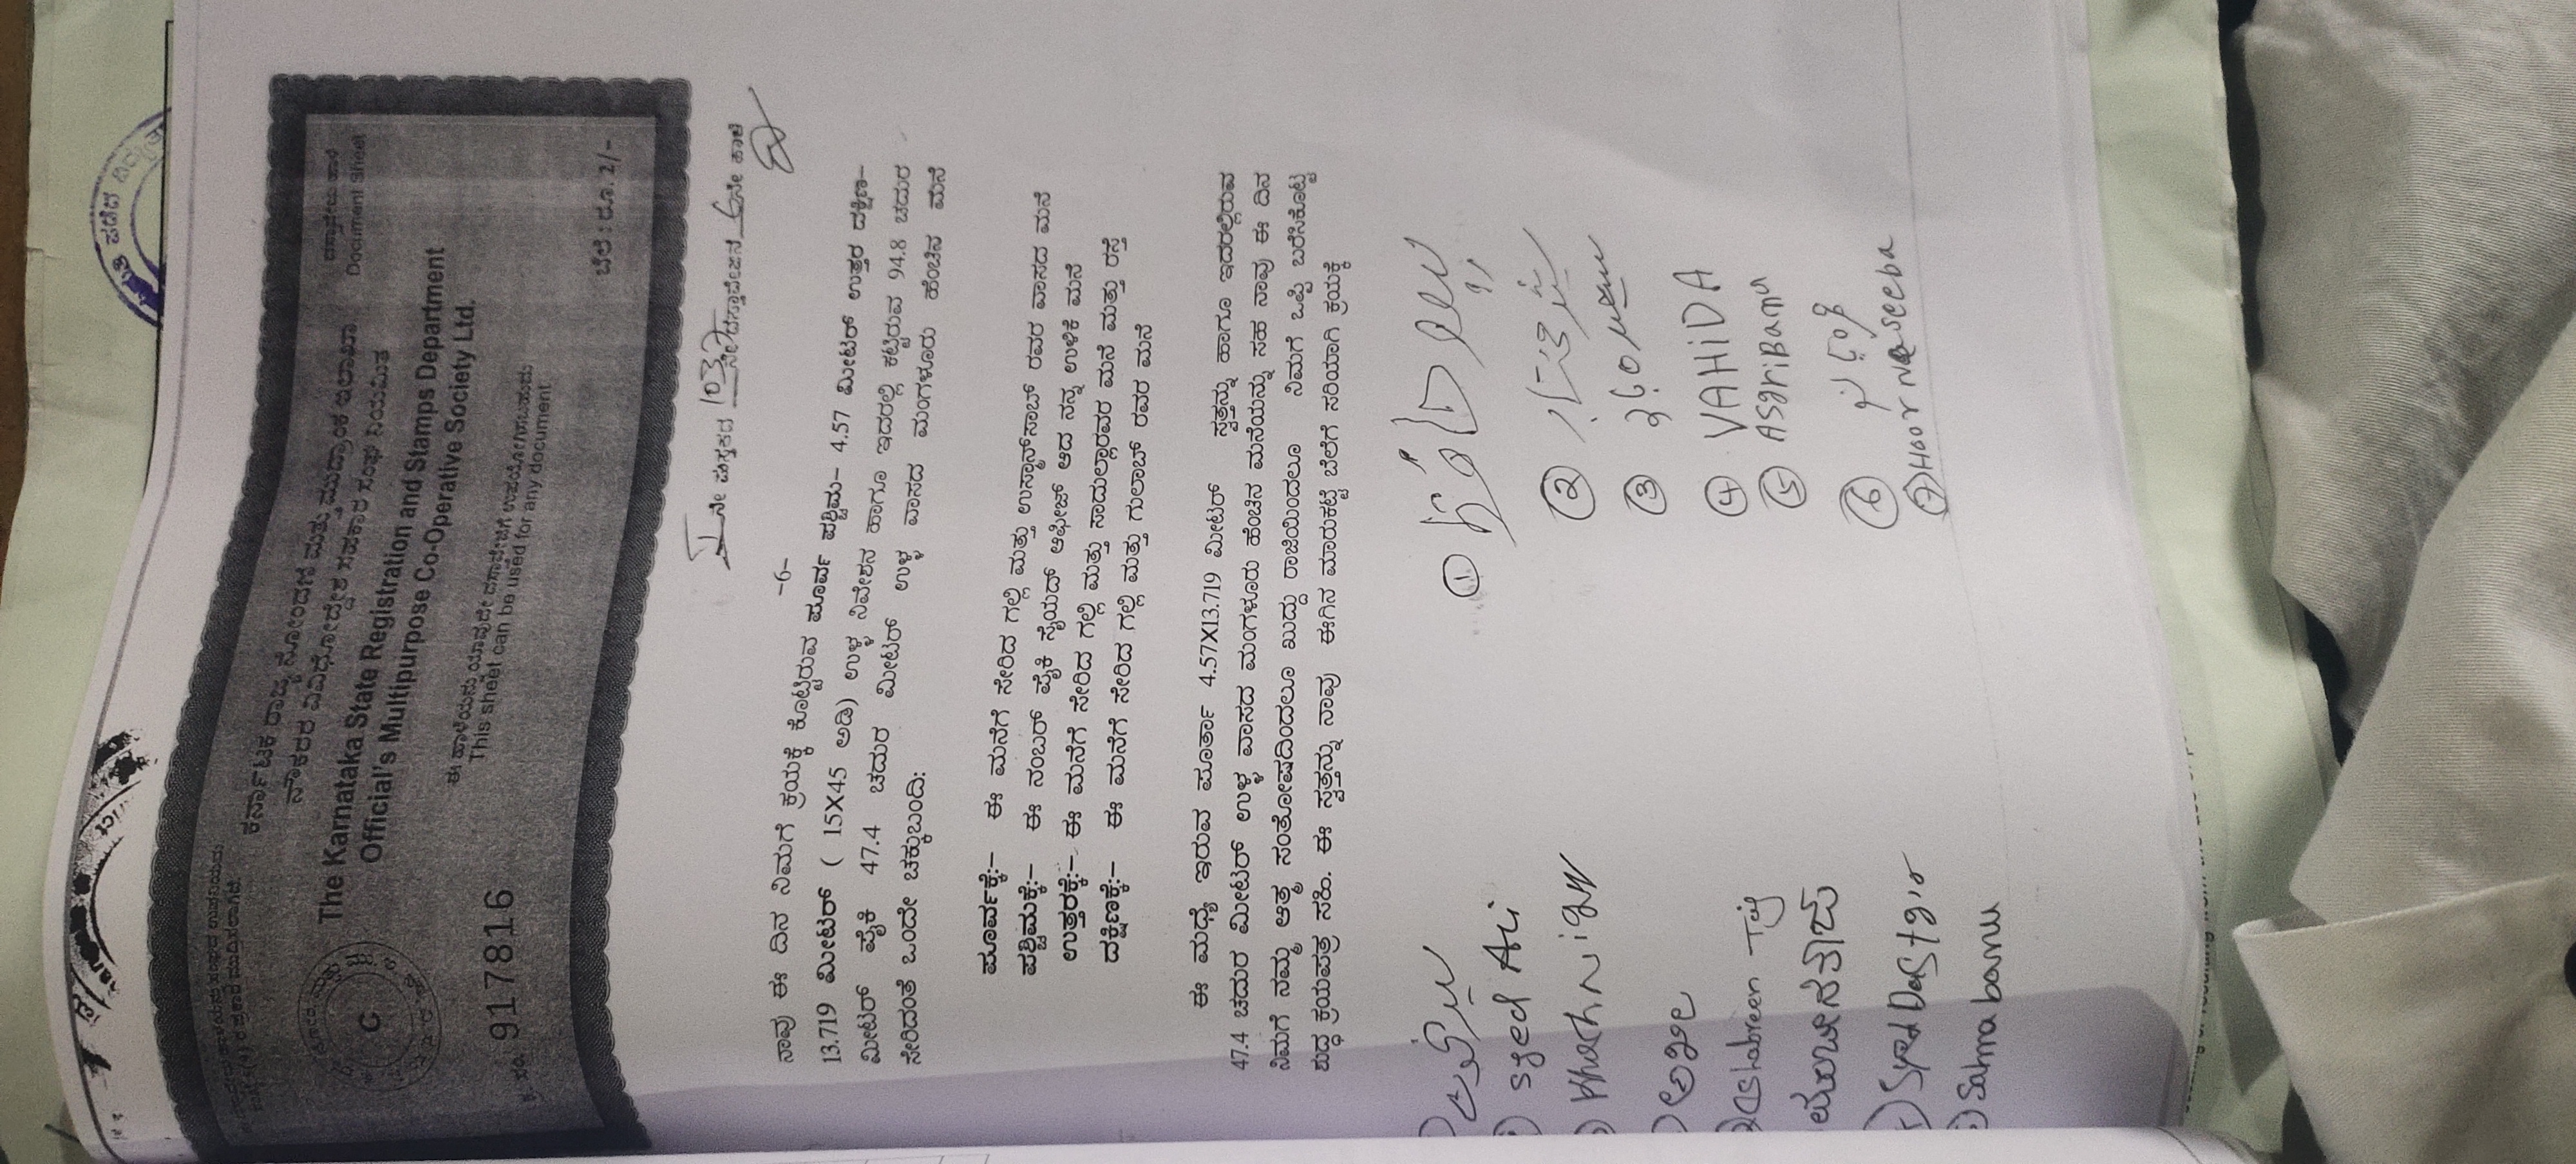 ಕರ್ನಾಟಕ ರಾಜ್ಯ ನೋಂದಣಿ ಮತ್ತು ಮುದ್ರಾಂಕ ಇಲಾಖಾ
ನೌಕರರ ವಿವಿಧೋದ್ದೇಶ ಸಹಕಾರ ಸಂಘ ನಿಯಮಿತ
ದಸ್ತಾವೇಜು ಹಾಳೆ
Document Sheet
The Karnataka State Registration and Stamps Department
Official's Multipurpose Co-Operative Society Ltd.
ಈ ಹಾಳೆಯನ್ನು ಯಾವುದೇ ದಸ್ತಾವೇಜಿಗೆ ಉಪಯೋಗಿಸಬಹುದು
This sheet can be used for any document
917816
ಬೆಲೆ : ರೂ. 2/-
I ನೇ ಪುಸ್ತಕದ 1037 ನೇ ದಸ್ತಾವೇಜಿನ 6ನೇ ಹಾಳೆ
-6-
ನಾವು ಈ ದಿನ ನಿಮಗೆ ಕ್ರಯಕ್ಕೆ ಕೊಟ್ಟಿರುವ ಪೂರ್ವ ಪಶ್ಚಿಮ- 4.57 ಮೀಟರ್ ಉತ್ತರ ದಕ್ಷಿಣ-
13.719 ಮೀಟರ್ ( 15X45 ಅಡಿ) ಉಳ್ಳ ನಿವೇಶನ ಹಾಗೂ ಇದರಲ್ಲಿ ಕಟ್ಟಿರುವ 94.8 ಚದುರ
ಮೀಟರ್ ಪೈಕಿ 47.4 ಚದುರ ಮೀಟರ್ ಉಳ್ಳ ವಾಸದ ಮಂಗಳೂರು ಹೆಂಚಿನ ಮನೆ
ಸೇರಿದಂತೆ ಒಂದೇ ಚಕ್ಕುಬಂದಿ:
ಪೂರ್ವಕ್ಕೆ:- ಈ ಮನೆಗೆ ಸೇರಿದ ಗಲ್ಲಿ ಮತ್ತು ಉಸ್ಮಾನ್‌ಸಾಬ್ ರವರ ವಾಸದ ಮನೆ
ಪಶ್ಚಿಮಕ್ಕೆ:- ಈ ನಂಬರ್ ಪೈಕಿ ಸೈಯದ್ ಆಫೀಜ್ ಆದ ನನ್ನ ಉಳಿಕೆ ಮನೆ
ಉತ್ತರಕ್ಕೆ:- ಈ ಮನೆಗೆ ಸೇರಿದ ಗಲ್ಲಿ ಮತ್ತು ಸಾದುಲ್ಲಾರವರ ಮನೆ ಮತ್ತು ರಸ್ತೆ
ದಕ್ಷಿಣಕ್ಕೆ:- ಈ ಮನೆಗೆ ಸೇರಿದ ಗಲ್ಲಿ ಮತ್ತು ಗುಲಾಬ್ ರವರ ಮನೆ
ಈ ಮಧ್ಯೆ ಇರುವ ಪೂರ್ತಾ 4.57X13.719 ಮೀಟರ್ ಸ್ವತ್ತನ್ನು ಹಾಗೂ ಇದರಲ್ಲಿರುವ
47.4 ಚದುರ ಮೀಟರ್ ಉಳ್ಳ ವಾಸದ ಮಂಗಳೂರು ಹೆಂಚಿನ ಮನೆಯನ್ನು ಸಹ ನಾವು ಈ ದಿನ
ನಿಮಗೆ ನಮ್ಮ ಆತ್ಮ ಸಂತೋಷದಿಂದಲೂ ಖುದ್ದು ರಾಜಿಯಿಂದಲೂ ನಿಮಗೆ ಒಪ್ಪಿ ಬರೆಸಿಕೊಟ್ಟ
ಶುದ್ಧ ಕ್ರಯಪತ್ರ ಸಹಿ. ಈ ಸ್ವತ್ತನ್ನು ನಾವು ಈಗಿನ ಮಾರುಕಟ್ಟೆ ಬೆಲೆಗೆ ಸರಿಯಾಗಿ ಕ್ರಯಕ್ಕೆ
①
syed Ali
②
③
④ VAHiDA
⑤ ASgriBanu
Shabreen Taj
⑥
Syed Dastgir
⑦ Hoor naseeba
Salma banu